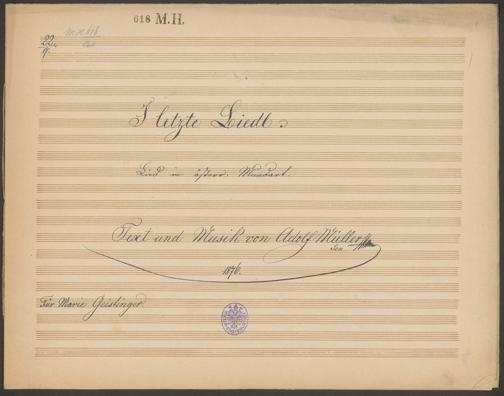 618 M.H.
22
9.
S' letzte Liedl.
Lied in österr. Mundart.
Text und Musik von Adolf Müller
Sen
1876.
Für Marie Geistinger